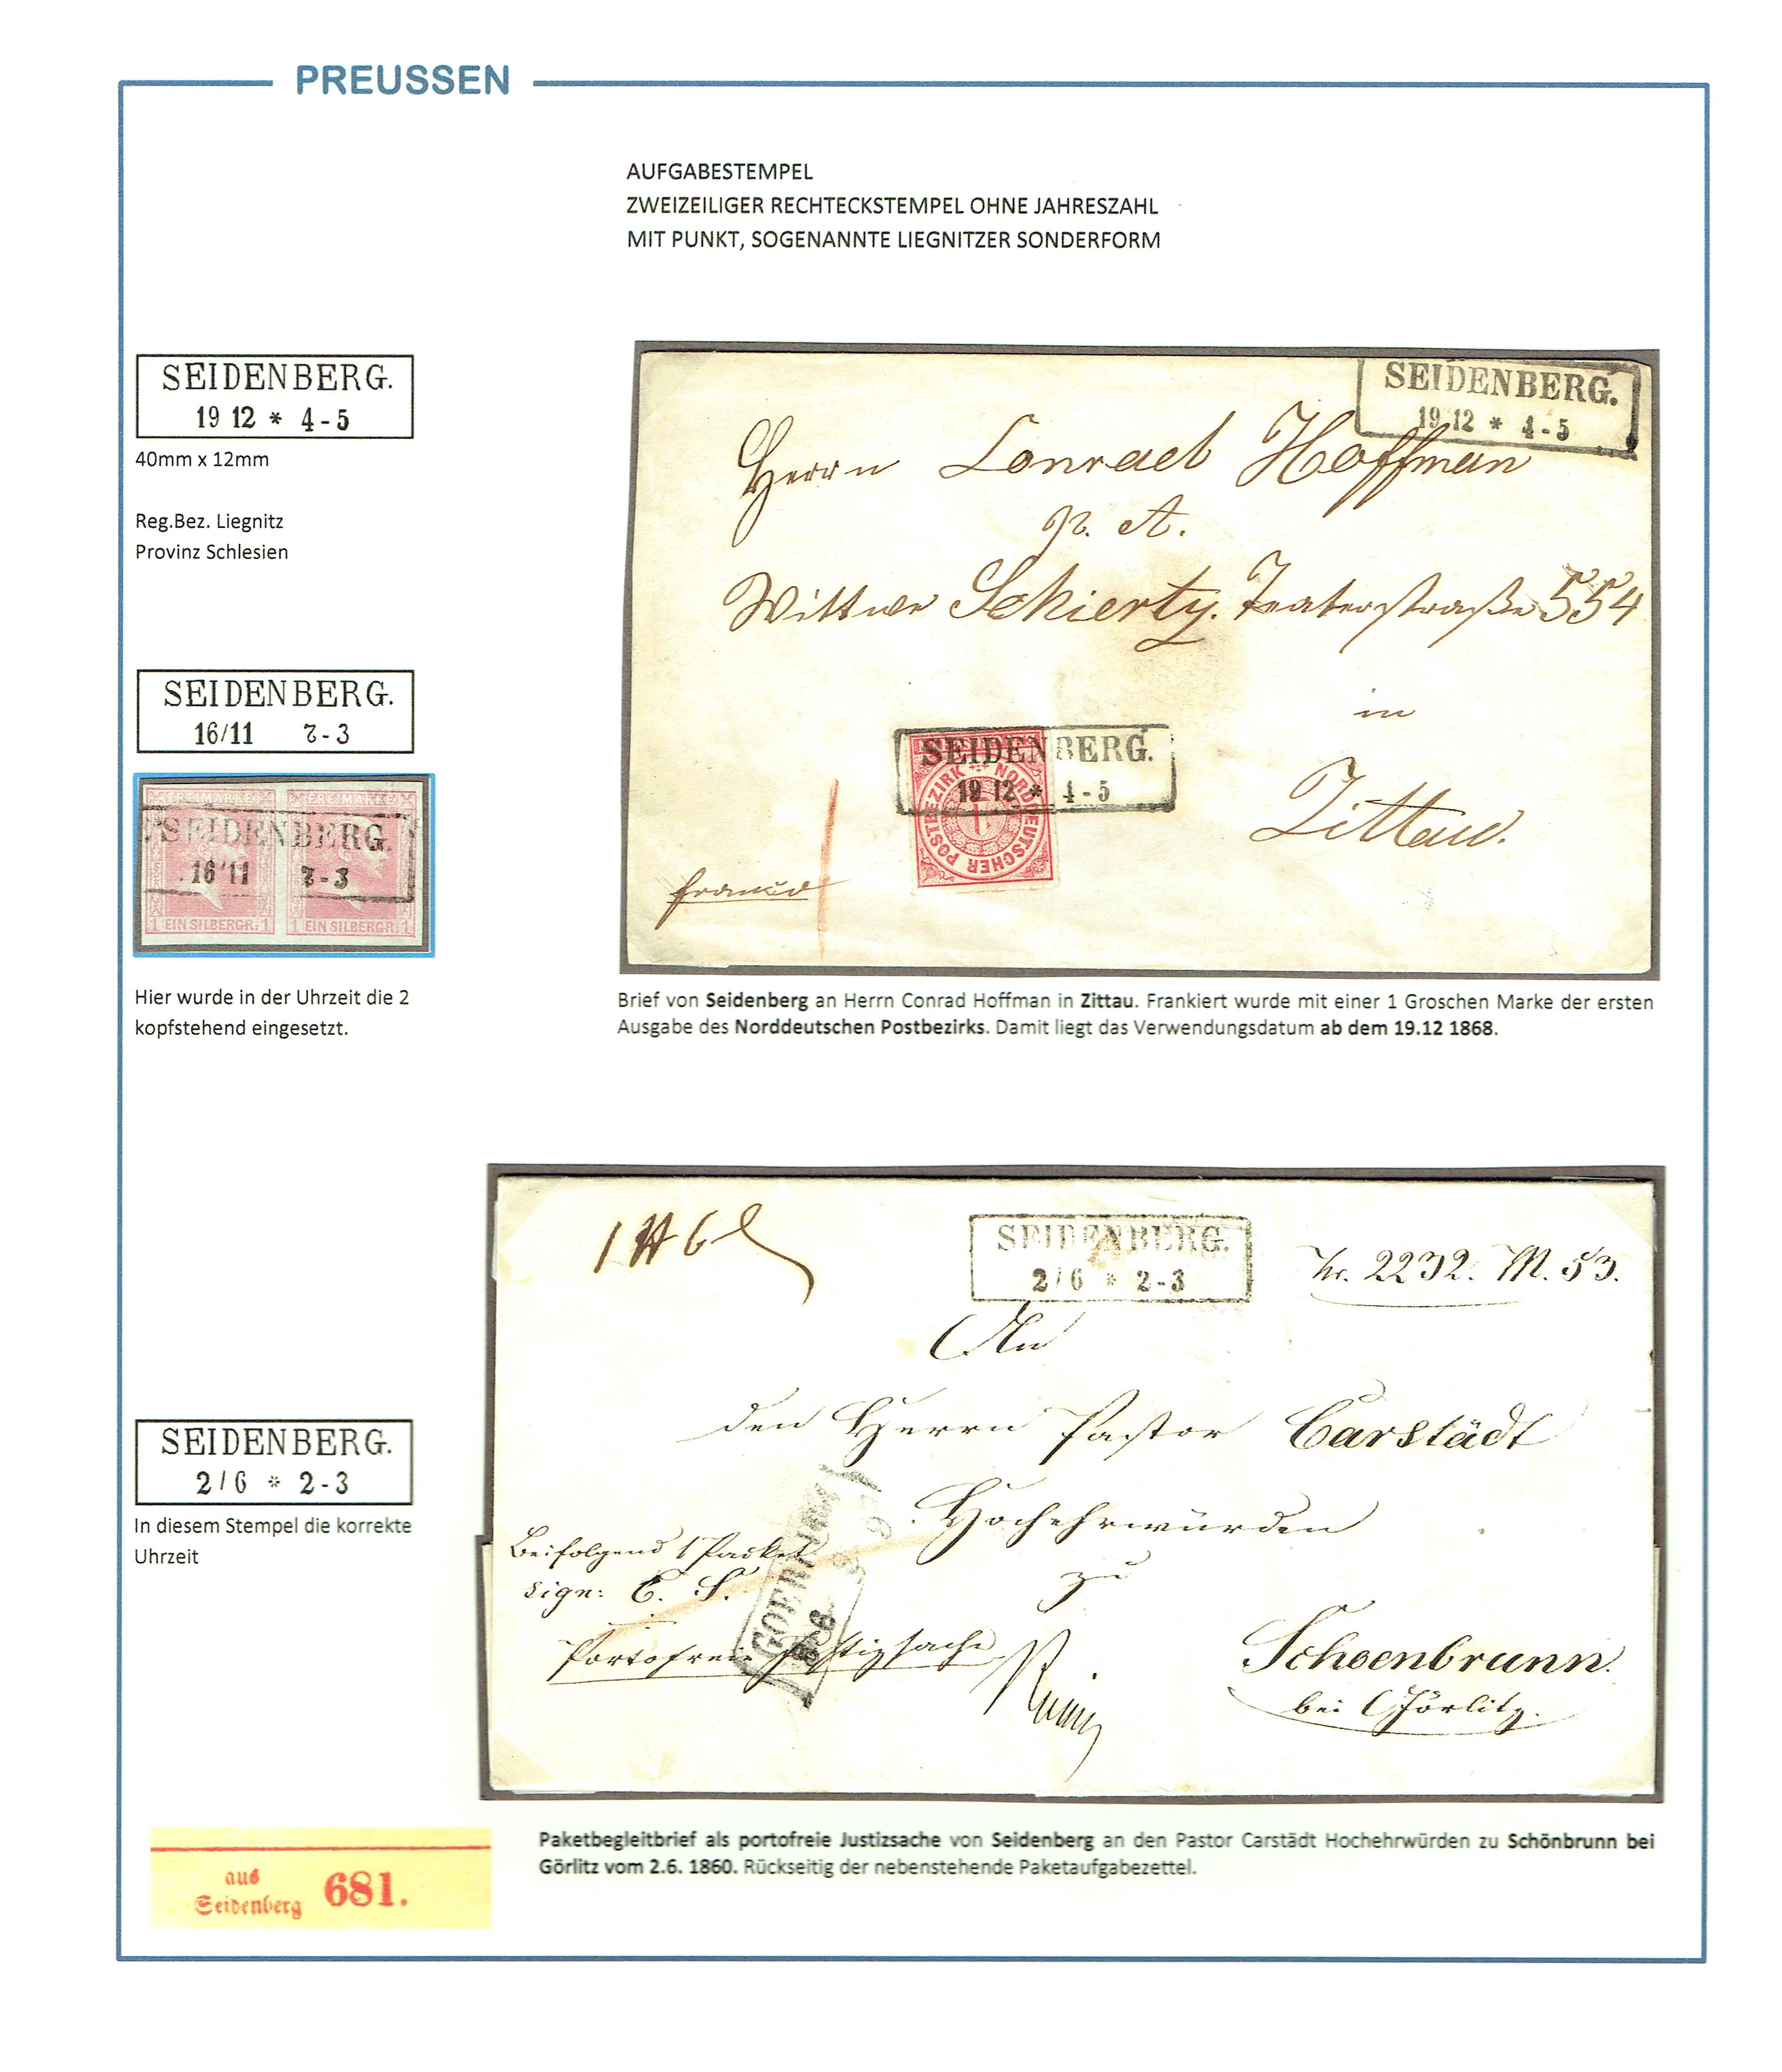 PREUSSEN
AUFGABESTEMPEL
ZWEIZEILIGER RECHTECKSTEMPEL OHNE JAHRESZAHL
MIT PUNKT, SOGENANNTE LIEGNITZER SONDERFORM
SEIDENBERG.
19 12 * 4-5
40mm x 12mm
Reg.Bez. Liegnitz
Provinz Schlesien
SEIDENBERG.
16/11 2-3
FREIMARKE FREIMARKE
SEIDENBERG.
16 11 2-3
1 EIN SILBERGR. 1 1 EIN SILBERGR. 1
Hier wurde in der Uhrzeit die 2
kopfstehend eingesetzt.
SEIDENBERG.
19 12 * 4-5
Herrn Conrad Hoffman
p. A.
Wittwe Schierty. Teaterstraße 554
in
Zittau.
SEIDENBERG.
19 12 * 4-5
NORDDEUTSCHER POSTBEZIRK
1
franco
Brief von Seidenberg an Herrn Conrad Hoffman in Zittau. Frankiert wurde mit einer 1 Groschen Marke der ersten
Ausgabe des Norddeutschen Postbezirks. Damit liegt das Verwendungsdatum ab dem 19.12 1868.
SEIDENBERG.
2/6 * 2-3
Nr. 2232. M. 53.
An
den Herrn Pastor Carstädt
Hochehrwürden
zu
Schoenbrunn.
bei Görlitz.
Beifolgend 1 Packet
sign: C. S.
Portofreie Justizsache
SEIDENBERG.
2/6 * 2-3
In diesem Stempel die korrekte
Uhrzeit
Paketbegleitbrief als portofreie Justizsache von Seidenberg an den Pastor Carstädt Hochehrwürden zu Schönbrunn bei
Görlitz vom 2.6. 1860. Rückseitig der nebenstehende Paketaufgabezettel.
aus
Seidenberg 681.